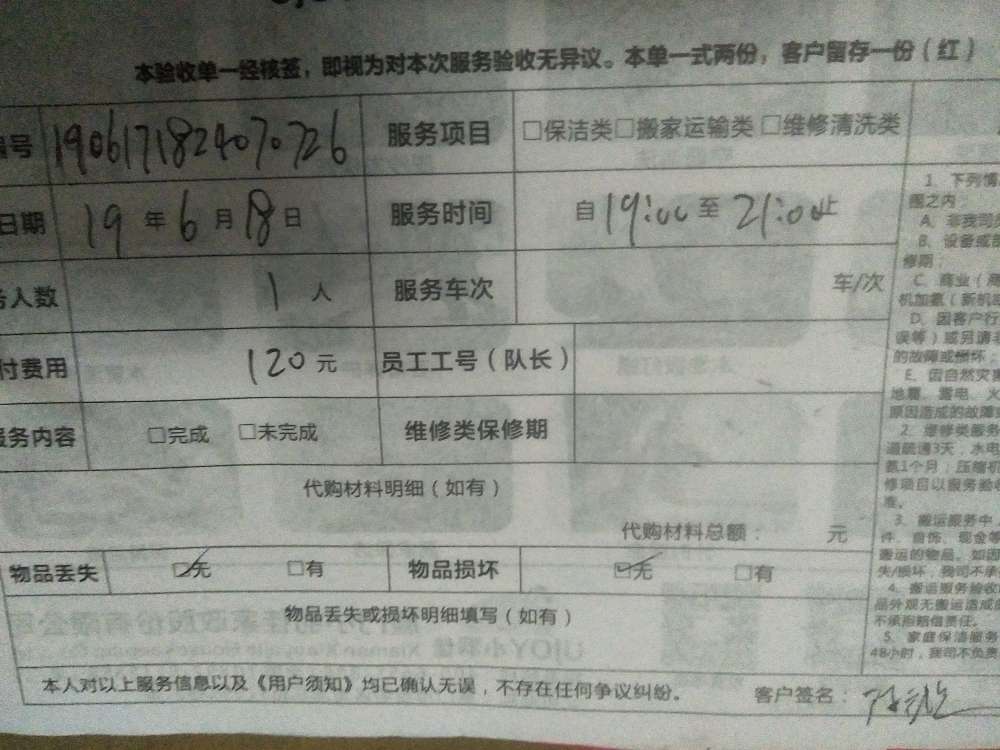 本验收单一经核签，即视为对本次服务验收无异议。本单一式两份，客户留存一份（红）
编号 1906171824070726 服务项目 □保洁类□搬家运输类 □维修清洗类
日期 19 年 6 月 18 日 服务时间 自 19:00 至 21:00 止
务人数 1 人 服务车次 车/次
付费用 120 元 员工工号（队长）
服务内容 □完成 □未完成 维修类保修期
代购材料明细（如有）
代购材料总额： 元
物品丢失 ☑无 □有 物品损坏 ☑无 □有
物品丢失或损坏明细填写（如有）
本人对以上服务信息以及《用户须知》均已确认无误，不存在任何争议纠纷。 客户签名：
1. 下列情
围之内：
A. 非我司
B. 设备或
修期；
C. 商业（商
机加氟（新机
D. 因客户行
误等）或另请
的故障或损坏；
E. 因自然灾害
地震、雷电、火
原因造成的故障
2. 维修类服务
道疏通3天，水电
氟1个月；压缩机
修项目以服务验收
准。
3. 搬运服务中
件、首饰、现金等
搬运的物品。如因
失/损坏，我司不承
4. 搬运服务验收
品外观无搬运造成
不承担赔偿责任。
5. 家庭保洁服务
48小时，我司不负责